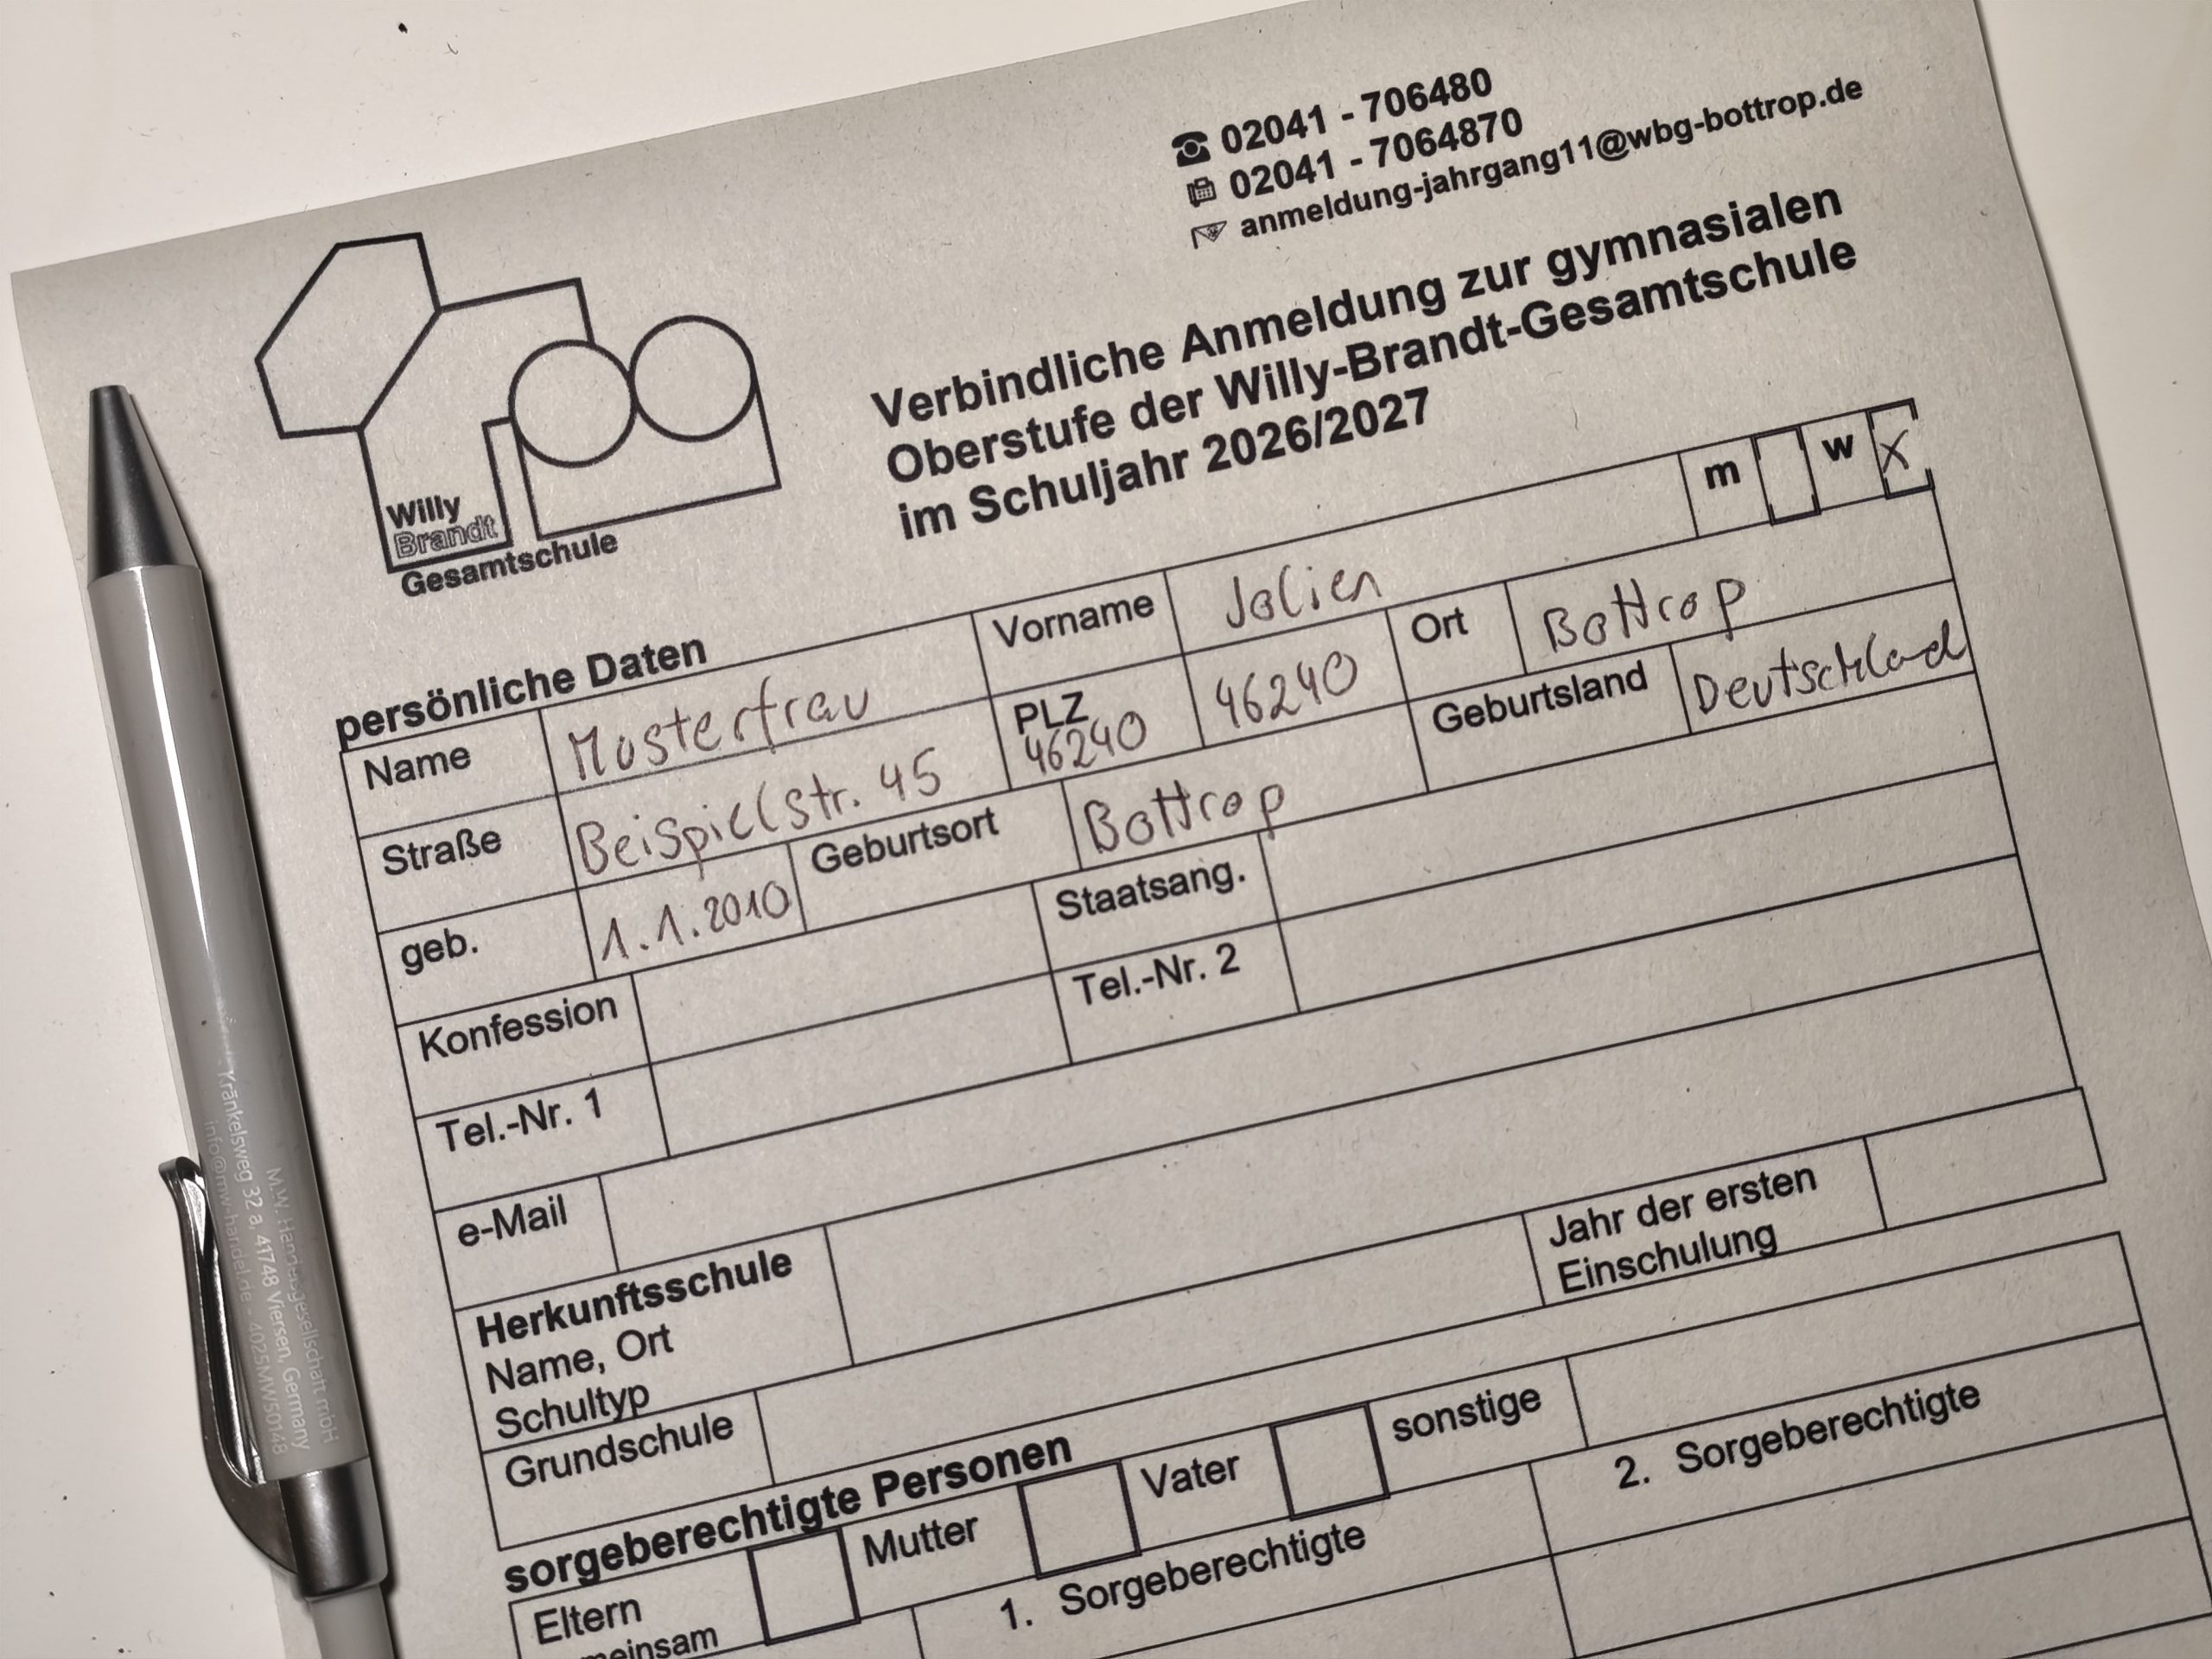 ☎ 02041 - 706480
02041 - 7064870
anmeldung-jahrgang11@wbg-bottrop.de
Verbindliche Anmeldung zur gymnasialen
Oberstufe der Willy-Brandt-Gesamtschule
im Schuljahr 2026/2027
Willy
Brandt
Gesamtschule
m w X
persönliche Daten
Name Musterfrau Vorname Jolien
Straße Beispielstr. 45 PLZ 46240 46240 Ort Bottrop
geb. 1.1.2010 Geburtsort Bottrop Geburtsland Deutschlad
Konfession Staatsang.
Tel.-Nr. 1 Tel.-Nr. 2
e-Mail
Herkunftsschule
Name, Ort
Schultyp
Jahr der ersten
Einschulung
Grundschule
sorgeberechtigte Personen
Eltern
meinsam
Mutter Vater sonstige
1. Sorgeberechtigte 2. Sorgeberechtigte
M.W. Handelsgesellschaft mbH
Kränkelsweg 32 a, 41748 Viersen, Germany
info@mw-handel.de - 4025MW50148